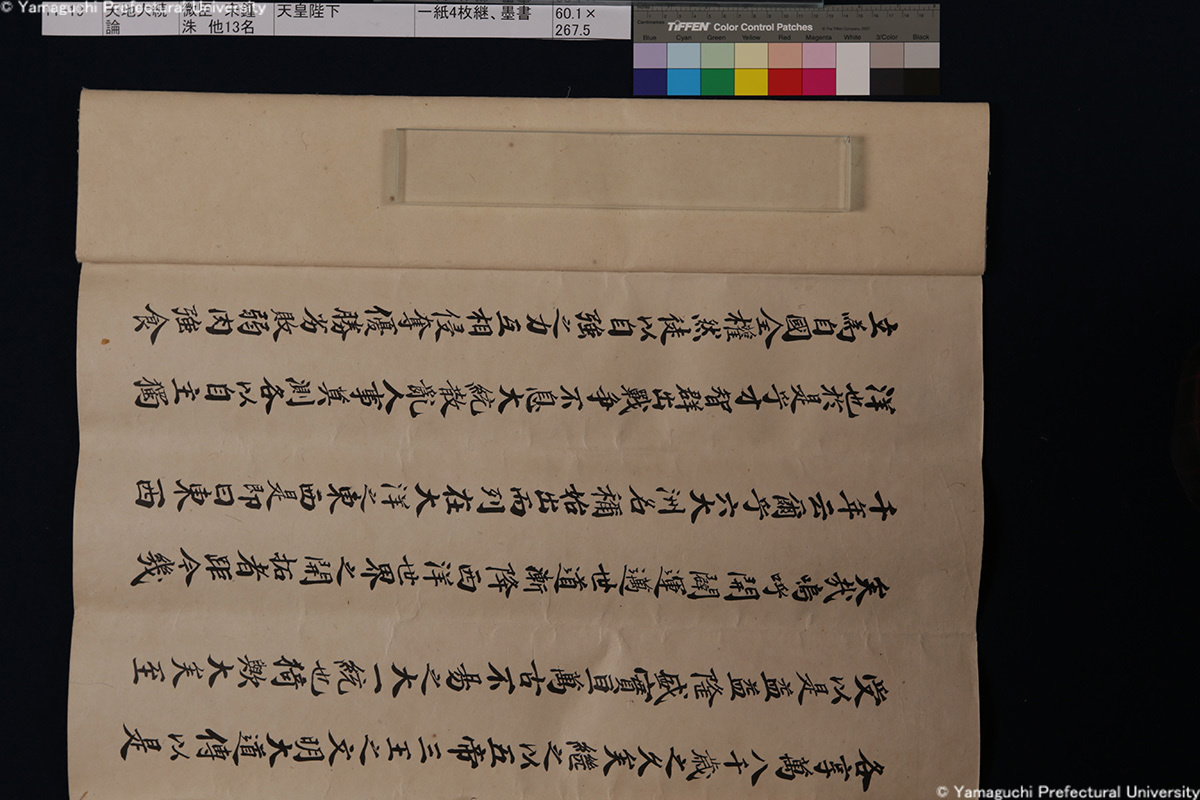 © Yamaguchi Prefectural University
論
洙 他13名
天皇陛下
一紙4枚継、墨書
60.1×
267.5
TIFFEN Color Control Patches
Centimetres
Blue Cyan Green Yellow Red Magenta White 3/Color Black
各享萬八千歲之久矣繼之以五帝三王之文明大道傳以是
受以是益益隆盛實亘萬古不易之大一統也猗歟大矣至
矣哉嗚呼開闢運邁世道漸降西洋世界之開拓者距今幾
千年云爾乎六大洲名稱始出而列在大洋之東西是即曰東西
洋也於是乎才智群出戰爭不息大統散亂人事莫測各以自主獨
立為自國全權然徒以自強之力互相侵奪優勝劣敗弱肉強食
© Yamaguchi Prefectural University